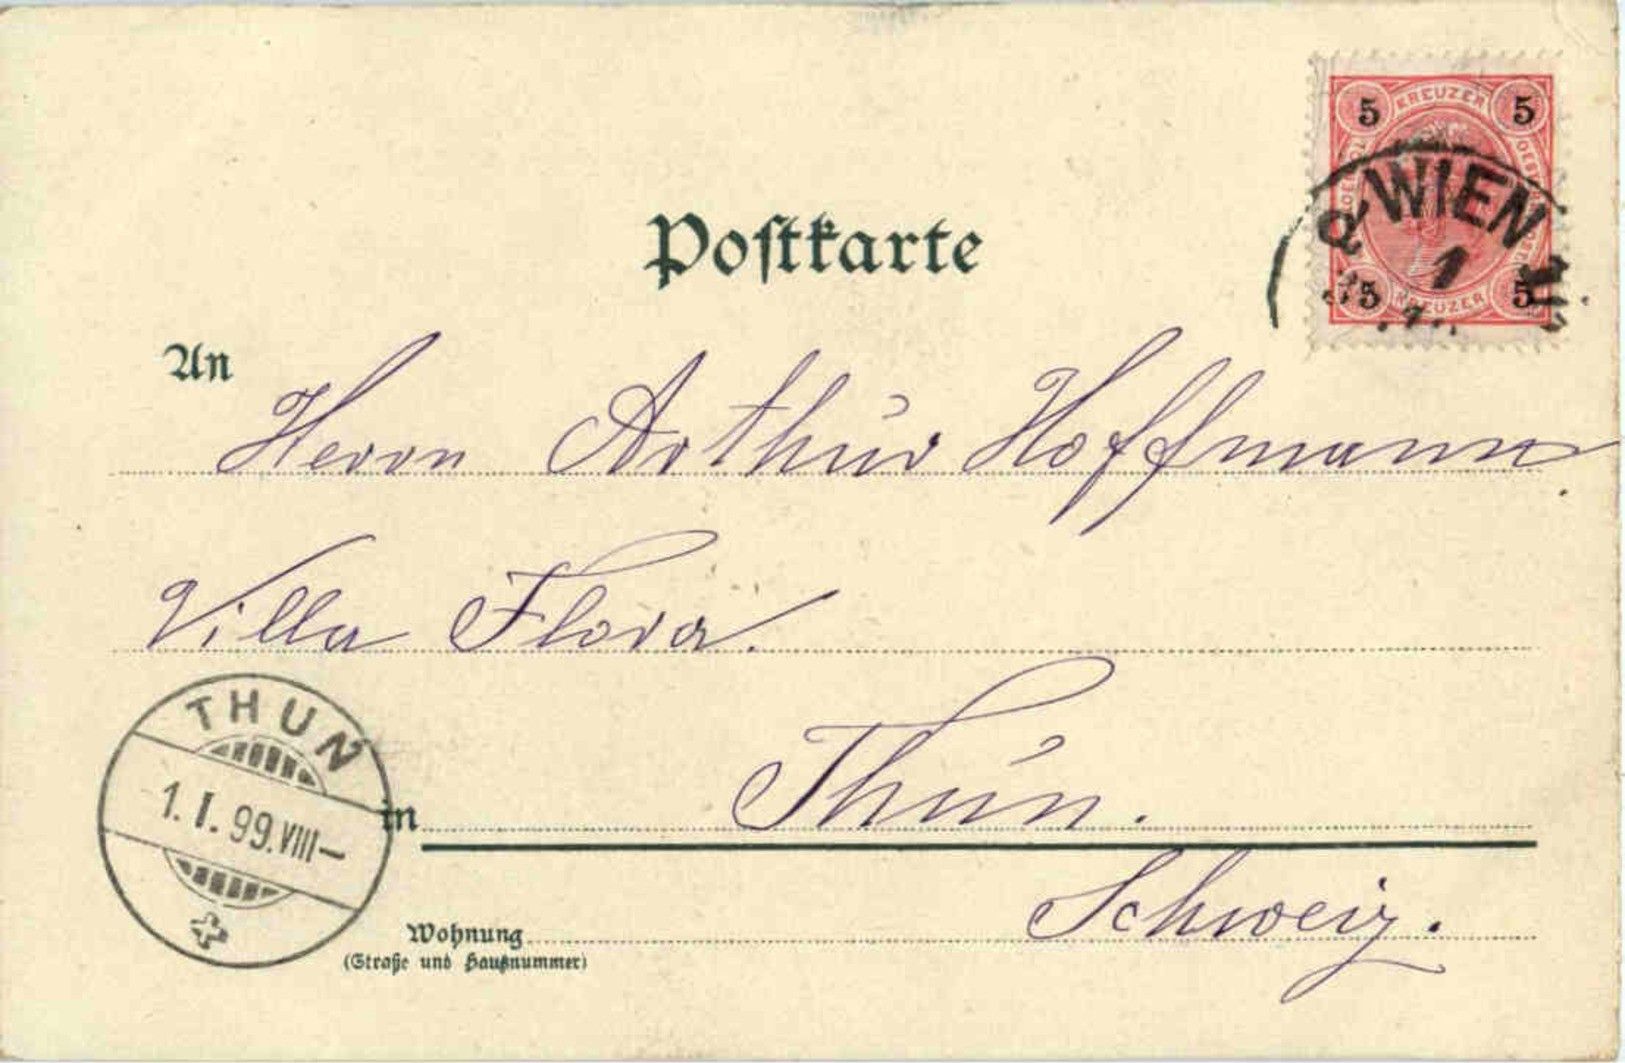 5 KREUZER 5
WIEN
1
5 KREUZER 5
Postkarte
An Herrn Arthur Hoffmann
Villa Flora.
THUN
1.I.99.VIII–
in Thun.
Schweiz.
Wohnung
(Straße und Hausnummer)